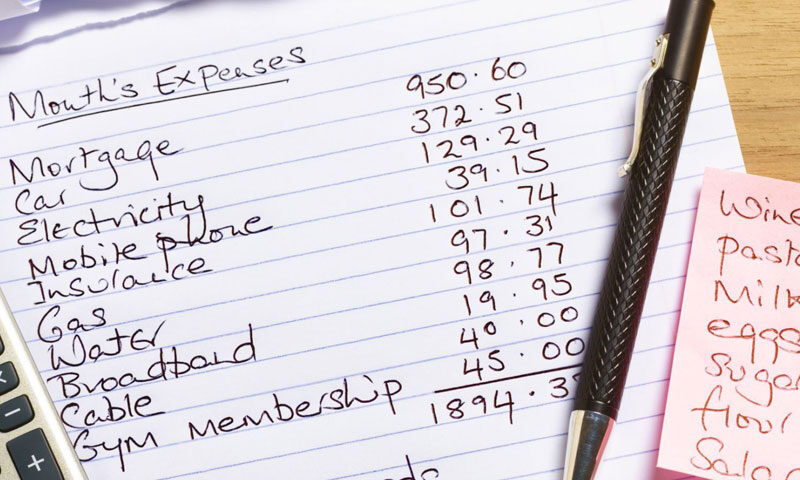 Month's Expenses
Mortgage 950.60
Car 372.51
Electricity 129.29
Mobile phone 39.15
Insurance 101.74
Gas 97.31
Water 98.77
Broadband 19.95
Cable 40.00
Gym Membership 45.00
1894.3
Wine
pasta
Milk
eggs
sugar
floor
×
−
+